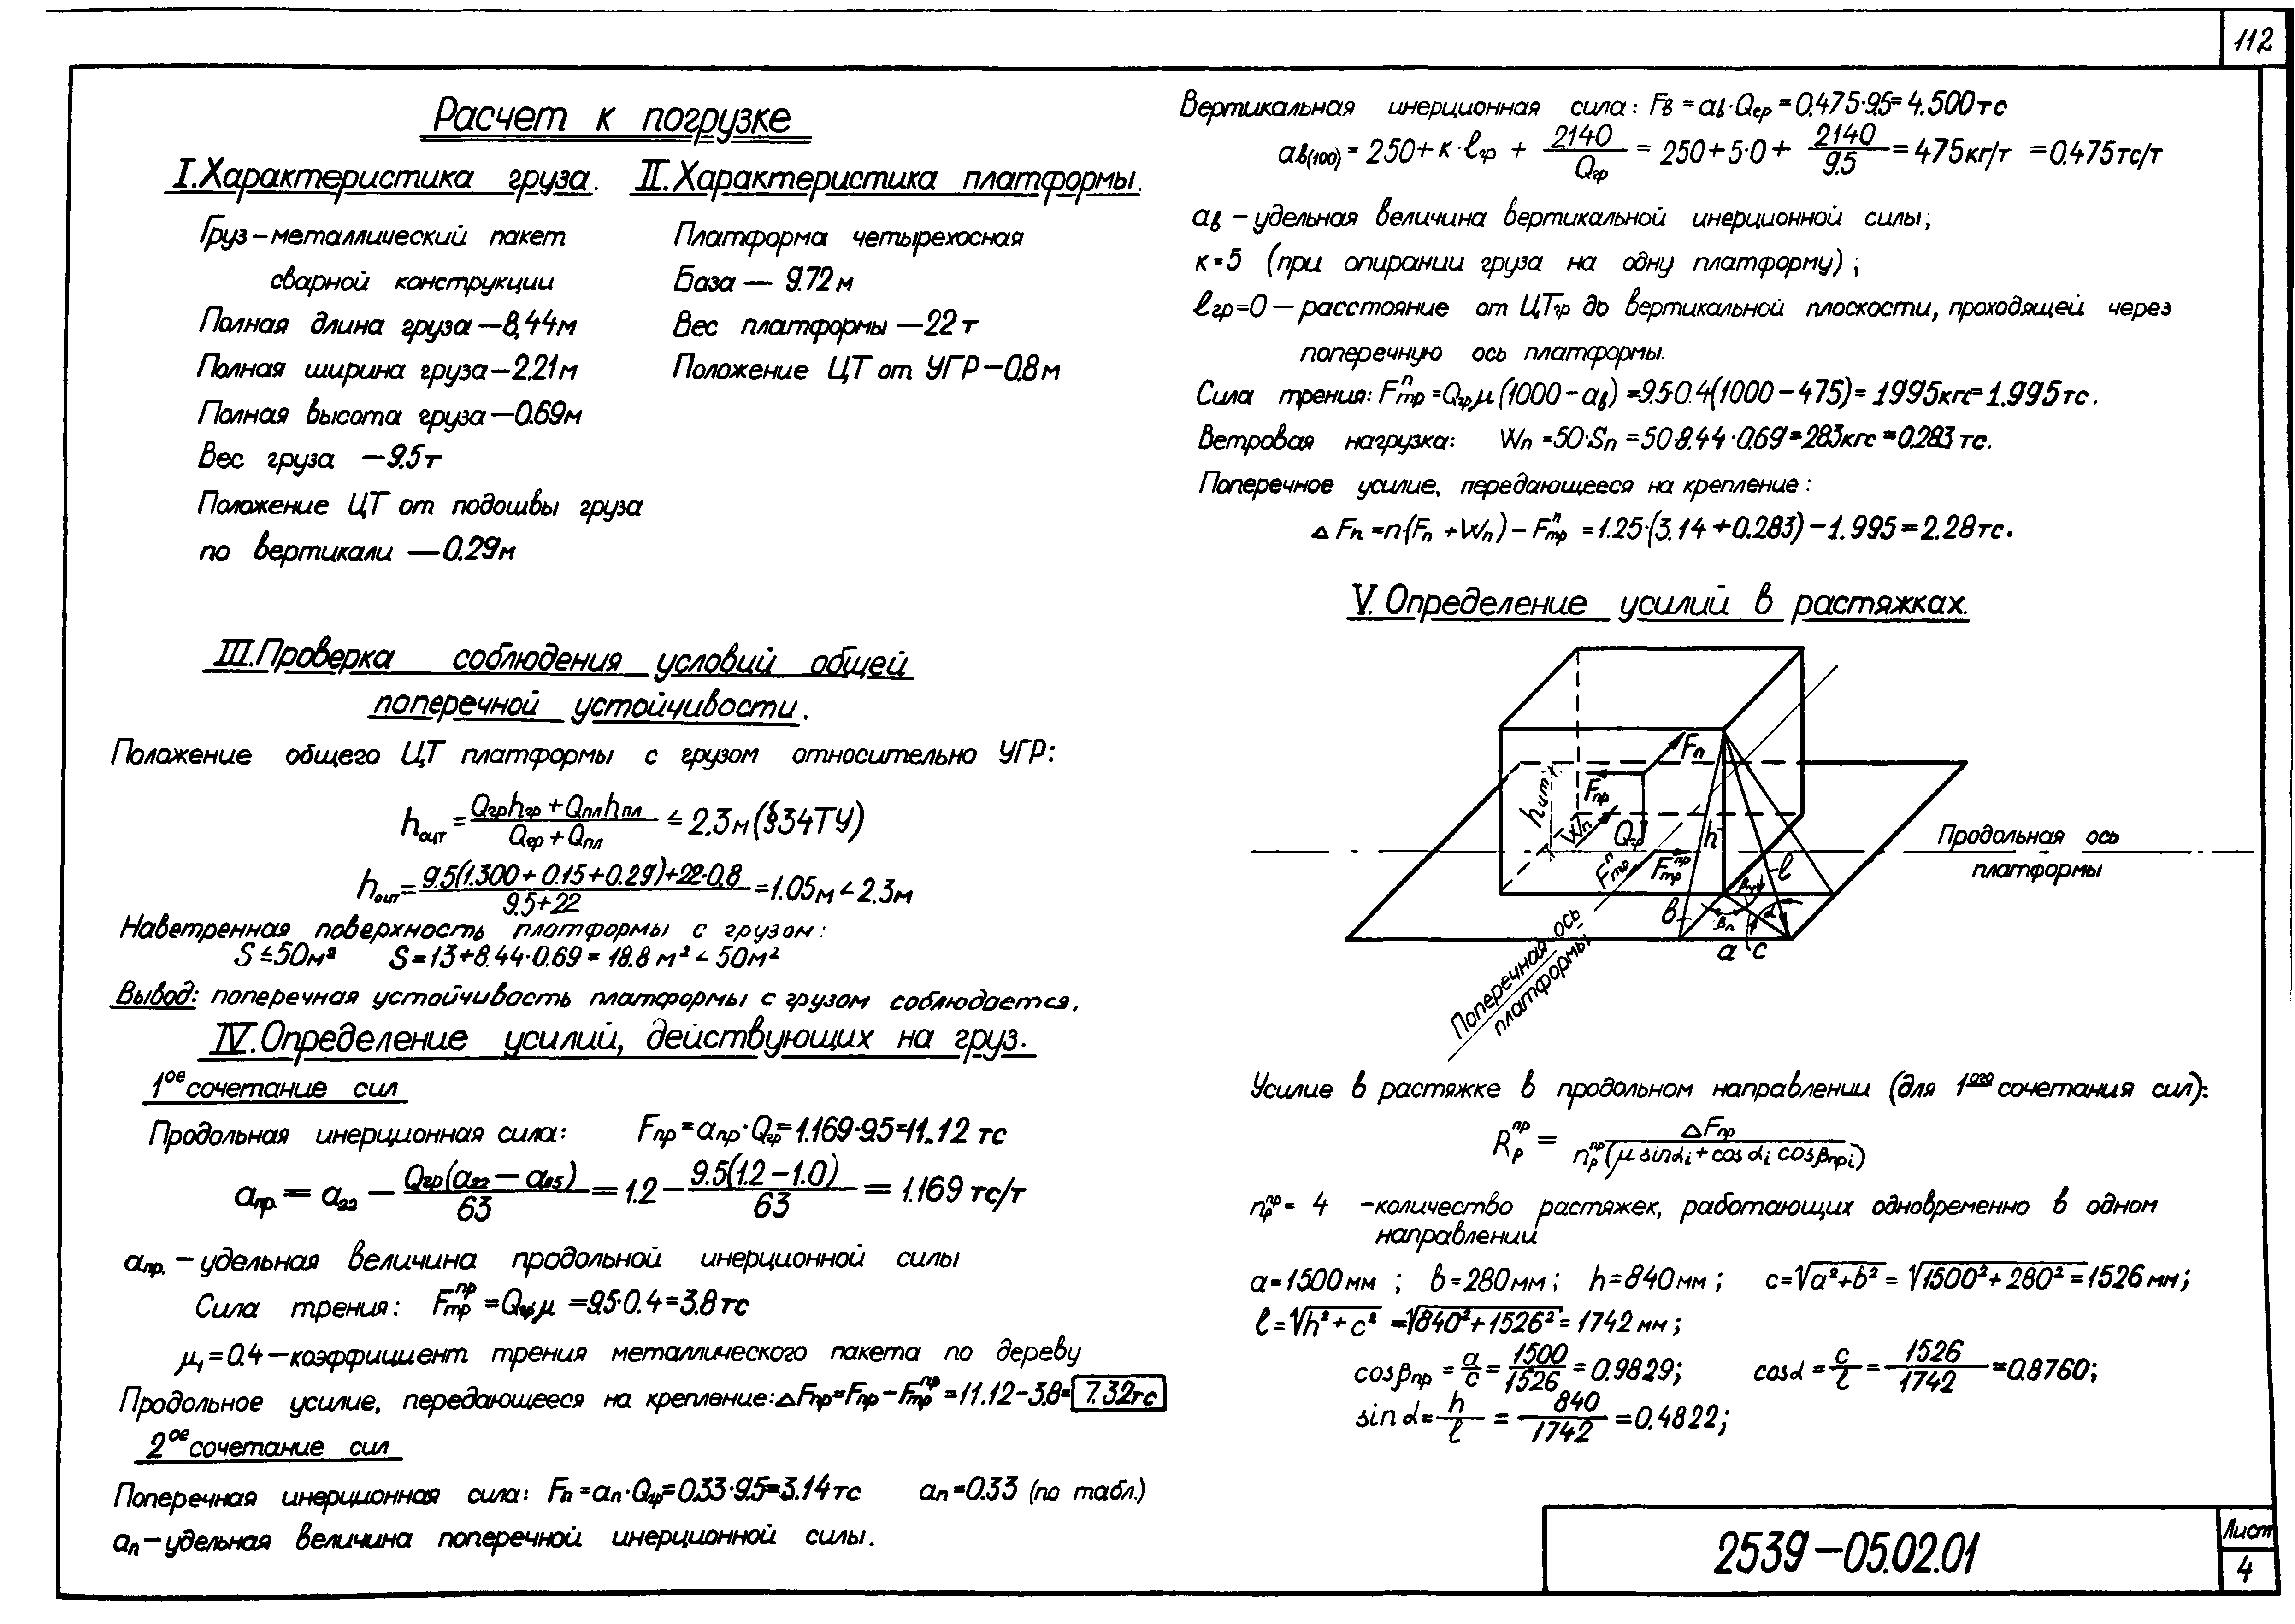 112
Расчет к погрузке
I. Характеристика груза.
Груз – металлический пакет
сварной конструкции
Полная длина груза – 8,44 м
Полная ширина груза – 2.21 м
Полная высота груза – 0.69 м
Вес груза – 9.5 т
Положение ЦТ от подошвы груза
по вертикали – 0.29 м
II. Характеристика платформы.
Платформа четырехосная
База – 9.72 м
Вес платформы – 22 т
Положение ЦТ от УГР – 0.8 м
III. Проверка соблюдения условий общей
поперечной устойчивости.
Положение общего ЦТ платформы с грузом относительно УГР:
hоцт = (Qгр hгр + Qпл hпл) / (Qгр + Qпл) ≤ 2.3 м (§34 ТУ)
hоцт = (9.5(1.300 + 0.15 + 0.29) + 22·0.8) / (9.5 + 22) = 1.05 м < 2.3 м
Наветренная поверхность платформы с грузом:
S ≤ 50 м² S = 13 + 8.44·0.69 = 18.8 м² < 50 м²
Вывод: поперечная устойчивость платформы с грузом соблюдается.
IV. Определение усилий, действующих на груз.
1ое сочетание сил
Продольная инерционная сила: Fпр = aпр·Qгр = 1.169·9.5 = 11.12 тс
aпр. = a22 – Qгр(a22 – a85) / 63 = 1.2 – 9.5(1.2 – 1.0) / 63 = 1.169 тс/т
aпр. – удельная величина продольной инерционной силы
Сила трения: Fтрпр = Qгр μ = 9.5·0.4 = 3.8 тс
μ1 = 0.4 – коэффициент трения металлического пакета по дереву
Продольное усилие, передающееся на крепление: ΔFпр = Fпр – Fтрпр = 11.12 – 3.8 = 7.32 тс
2ое сочетание сил
Поперечная инерционная сила: Fп = aп·Qгр = 0.33·9.5 = 3.14 тс aп = 0.33 (по табл.)
aп – удельная величина поперечной инерционной силы.
Вертикальная инерционная сила: Fв = aв·Qгр = 0.475·9.5 = 4.500 тс
aв(100) = 250 + к·lгр + 2140 / Qгр = 250 + 5·0 + 2140 / 9.5 = 475 кг/т = 0.475 тс/т
aв – удельная величина вертикальной инерционной силы;
к = 5 (при опирании груза на одну платформу);
lгр = 0 – расстояние от ЦТгр до вертикальной плоскости, проходящей через
поперечную ось платформы.
Сила трения: Fтрп = Qгр μ (1000 – aв) = 9.5·0.4(1000 – 475) = 1995 кгс = 1.995 тс.
Ветровая нагрузка: Wп = 50·Sп = 50·8.44·0.69 = 283 кгс = 0.283 тс.
Поперечное усилие, передающееся на крепление:
ΔFп = n·(Fп + Wп) – Fтрп = 1.25·(3.14 + 0.283) – 1.995 = 2.28 тс.
V. Определение усилий в растяжках.
Fп
Fпр
hцт
Wп
Qгр
h
Fтрп
Fтрпр
l
βпр
в
βп
α
a
c
Продольная ось
платформы
Поперечная ось
платформы
Усилие в растяжке в продольном направлении (для 1ого сочетания сил):
Rрпр = ΔFпр / nрпр(μ sinαi + cosαi cosβпрi)
nрпр = 4 – количество растяжек, работающих одновременно в одном
направлении
a = 1500 мм; в = 280 мм; h = 840 мм; c = √a² + b² = √1500² + 280² = 1526 мм;
l = √h² + c² = √840² + 1526² = 1742 мм;
cosβпр = a / c = 1500 / 1526 = 0.9829; cosα = c / l = 1526 / 1742 = 0.8760;
sinα = h / l = 840 / 1742 = 0.4822;
2539–05.02.01
Лист
4